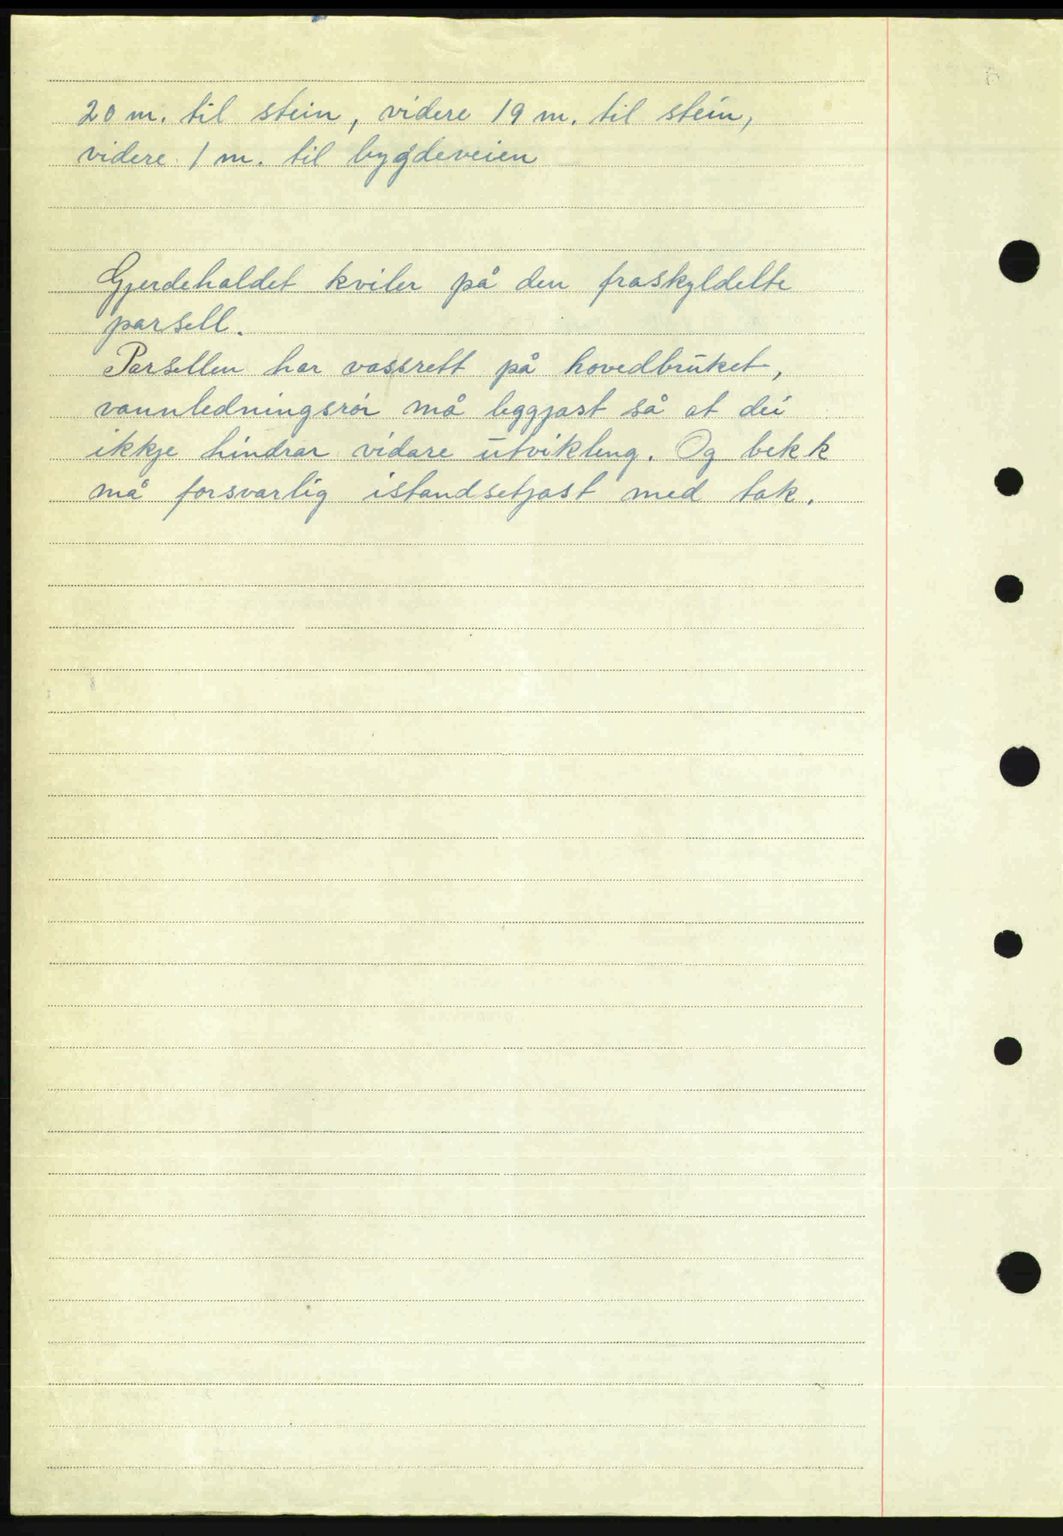 20 m. til stein, videre 19 m. til stein,
videre 1 m. til bygdeveien
Gjerdehaldet kviler på den fraskyldelte
parsell.
Parsellen har vassrett på hovedbruket,
vannledningsrör må leggjast så at dei
ikkje hindrar vidare utvikling. Og bekk
må forsvarlig istandsetjast med tak.